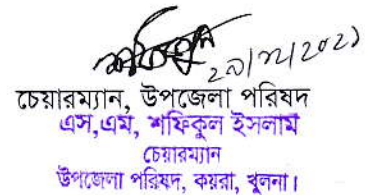 ২০/১২/২০২১
চেয়ারম্যান, উপজেলা পরিষদ
এস,এম, শফিকুল ইসলাম
চেয়ারম্যান
উপজেলা পরিষদ, কয়রা, খুলনা।